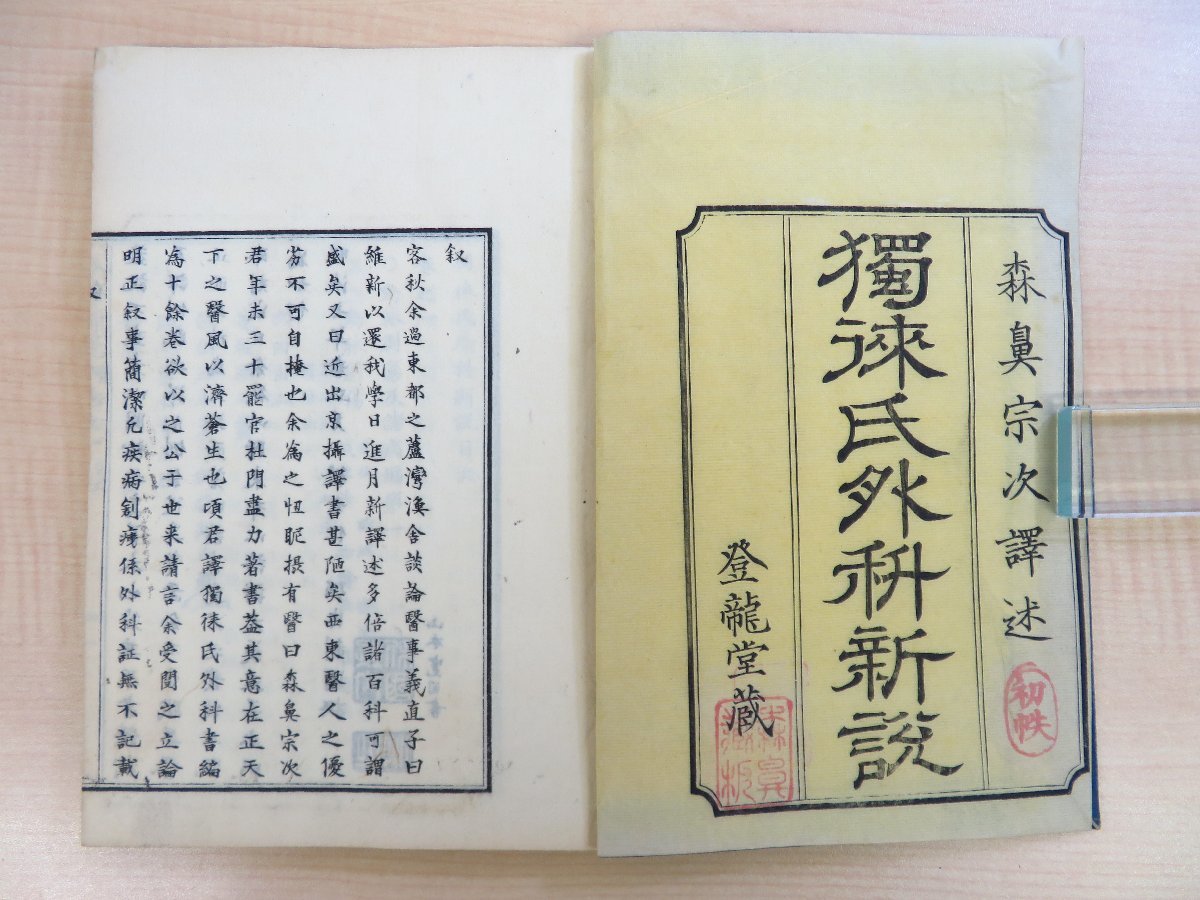 森鼻宗次譯述
初帙
獨徠氏外科新說
登龍堂藏
叙
客秋余過東都之蘆灣漁舍談論醫事義直子曰
維新以還我學日進月新譯述多倍諸百科可謂
盛矣又曰近出京攝譯書甚陋矣西東醫人之優
劣不可自掩也余為之忸眤摂有醫曰森鼻宗次
君年未三十罷官杜門盡力著書蓋其意在正天
下之醫風以濟蒼生也頃君譯獨徠氏外科書編
為十餘卷欲以之公于世来請言余受閲之立論
明正叙事簡潔凡疾病創痍係外科証無不記載